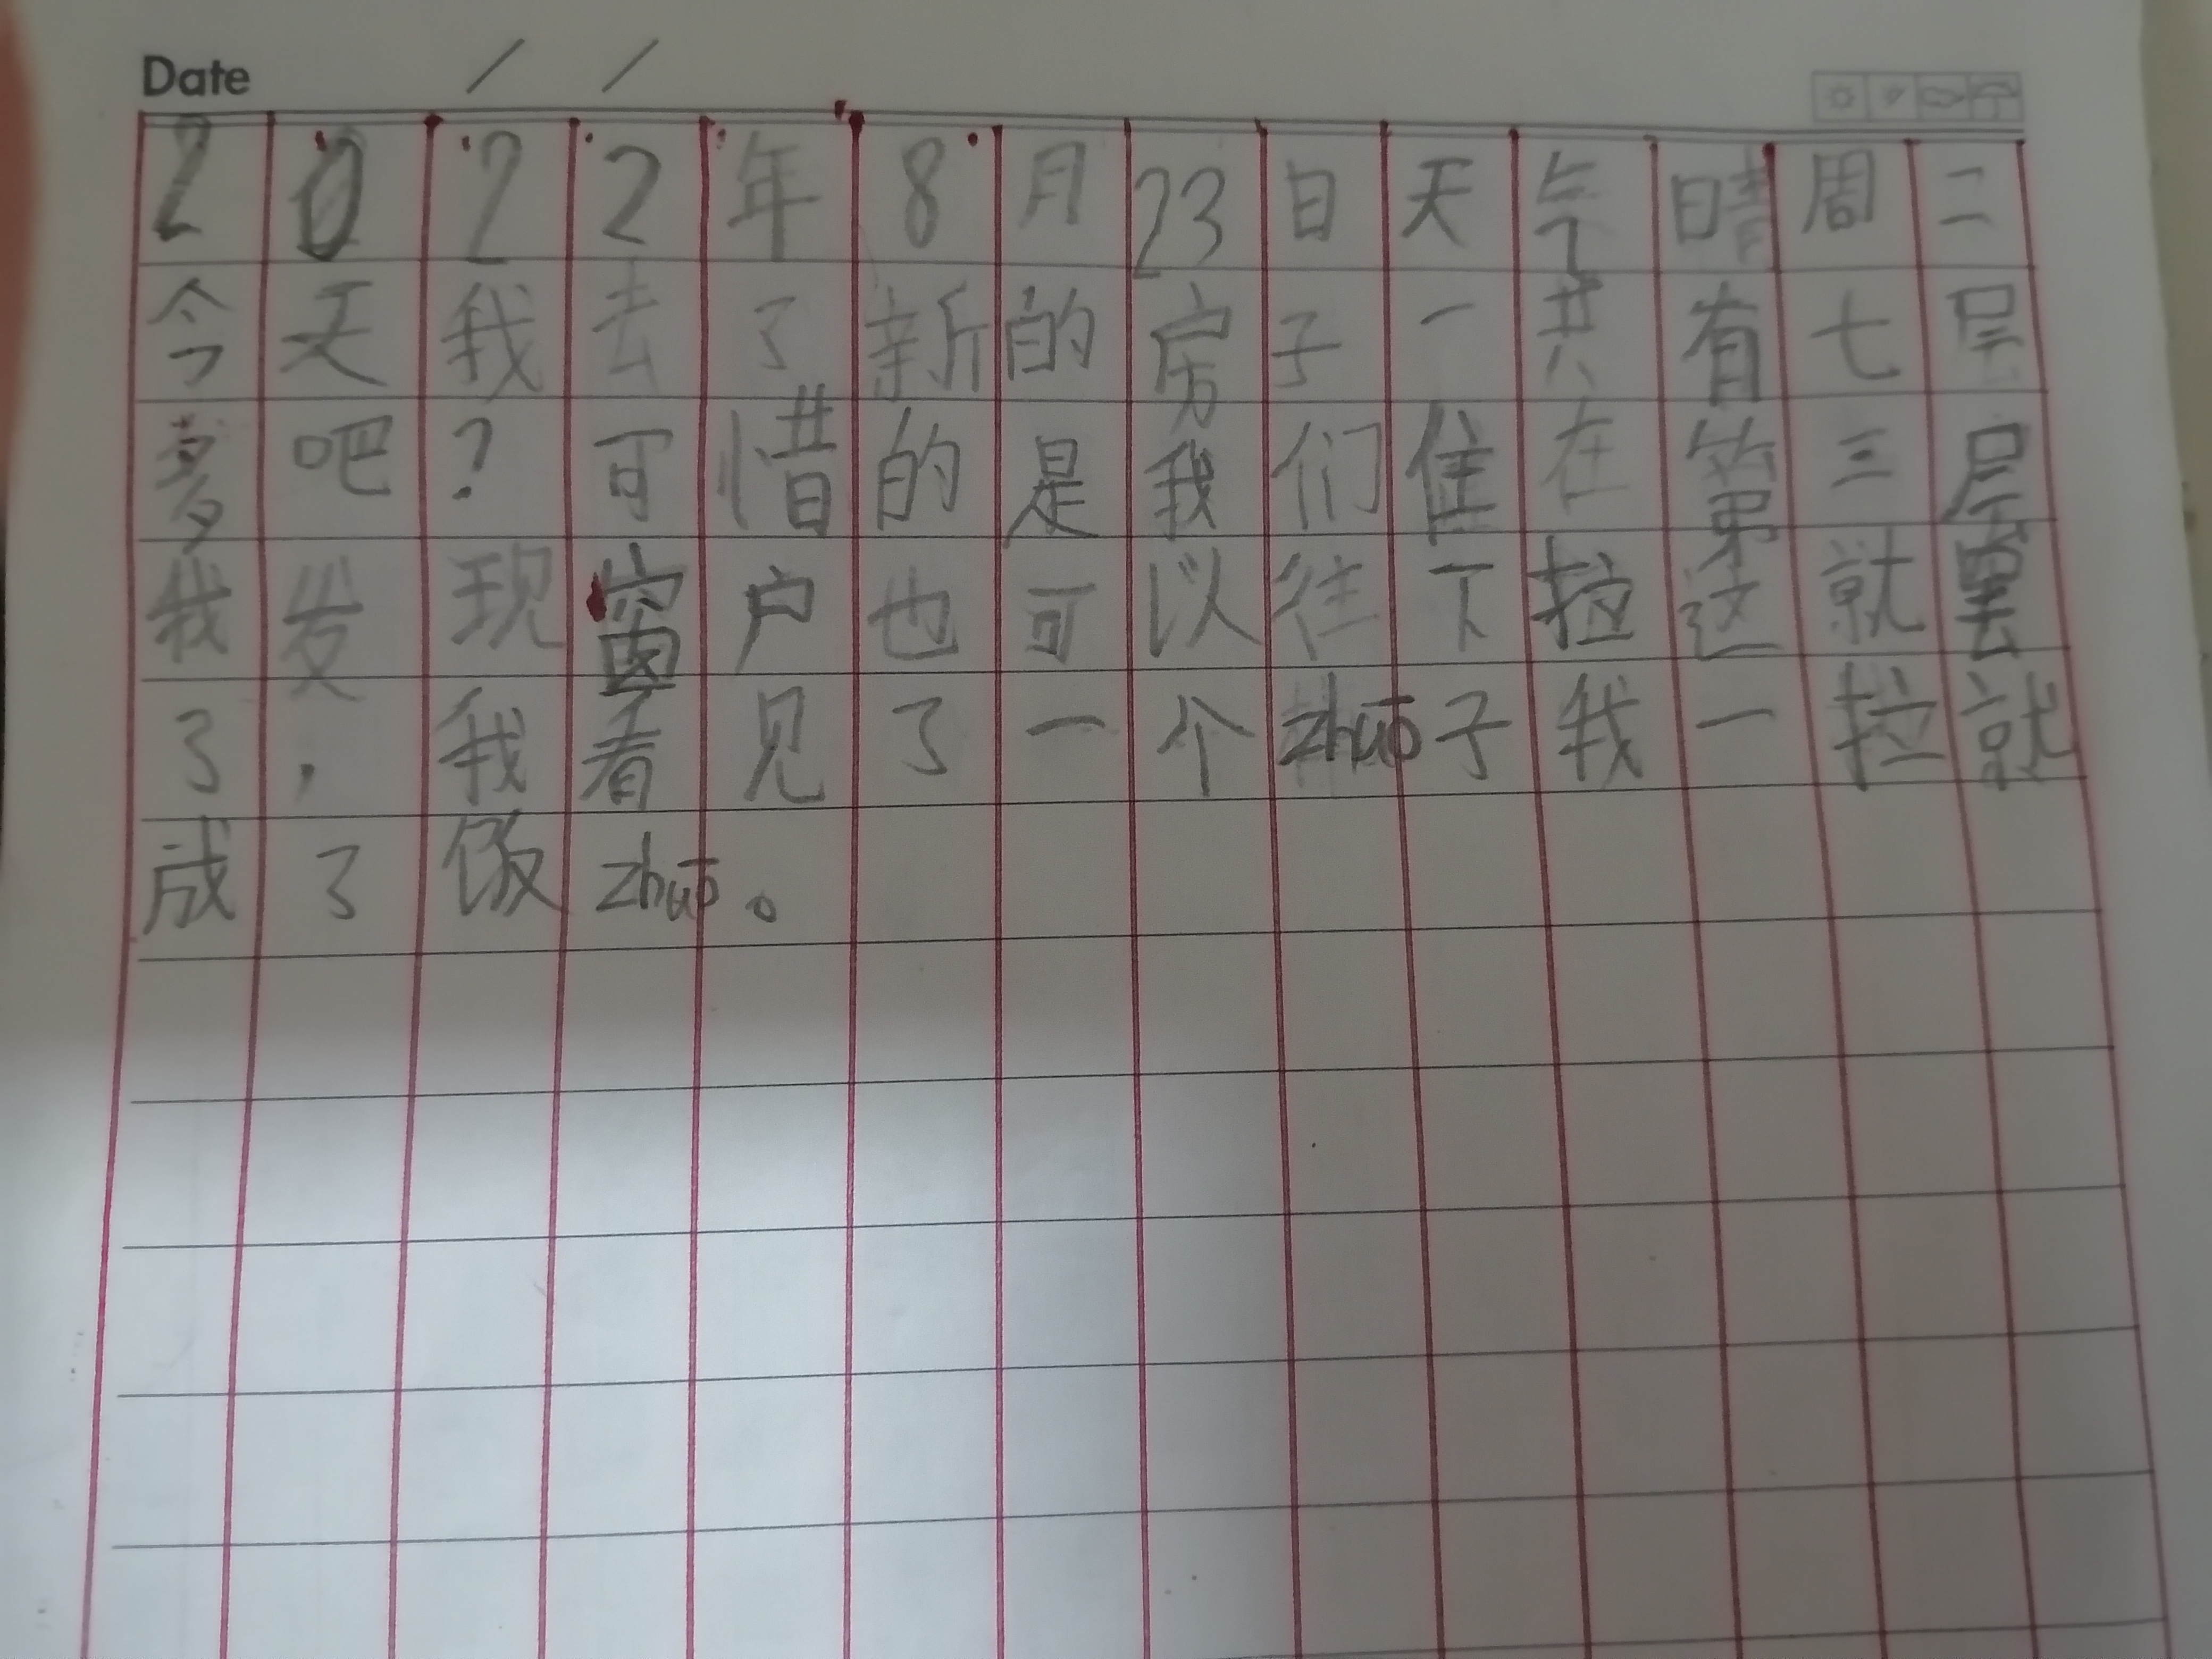 Date / /
2022年8月23日天气晴周二
今天我去了新的房子一共有七层
多吧?可惜的是我们住在第三层
我发现窗户也可以往下拉这就罢
了,我看见了一个zhuō子我一拉就
成了饭zhuō。